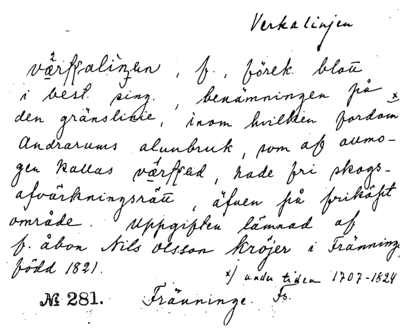 Verkalinjen
värksalinjen, f., förek. blott
i best. sing., benämningen på
den gränslinie, inom hvilken fordom x
Andrarums alunbruk, som af allmo-
gen kallas värksed, hade fri skogs-
afvärkningsrätt, äfven på frikäpt
område. Uppgiften lämnad af
f. åbon Nils Olsson Kröjer i Fränninge
född 1821.
x) under tiden 1707-1824
№ 281. Fränninge. Fs.